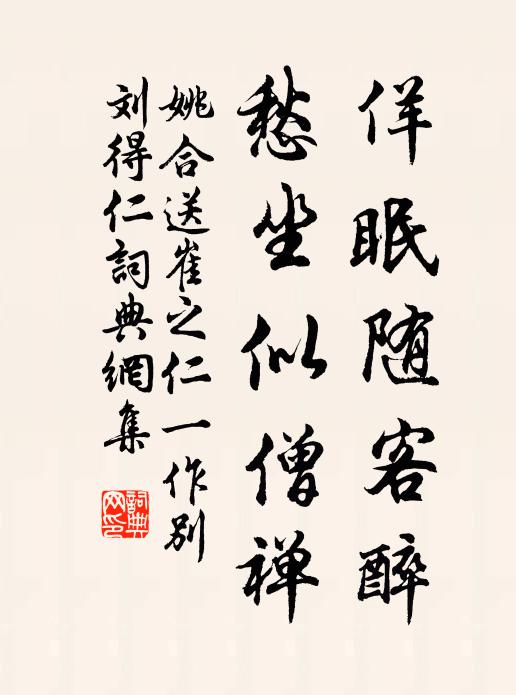 佯眠随客醉
愁坐似僧禅
姚合送崔之仁一作别
刘得仁詞典網集
詞典网印